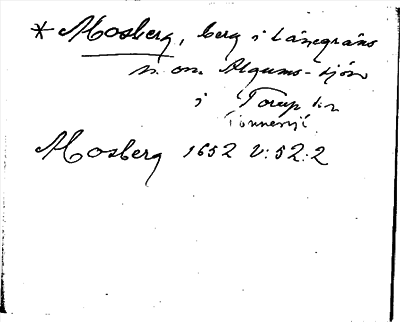 * Mosberg, berg i Länegräns
n. om Algums-sjön
i Torup sn
Tönnersjö
Mosberg 1652 V:52:2